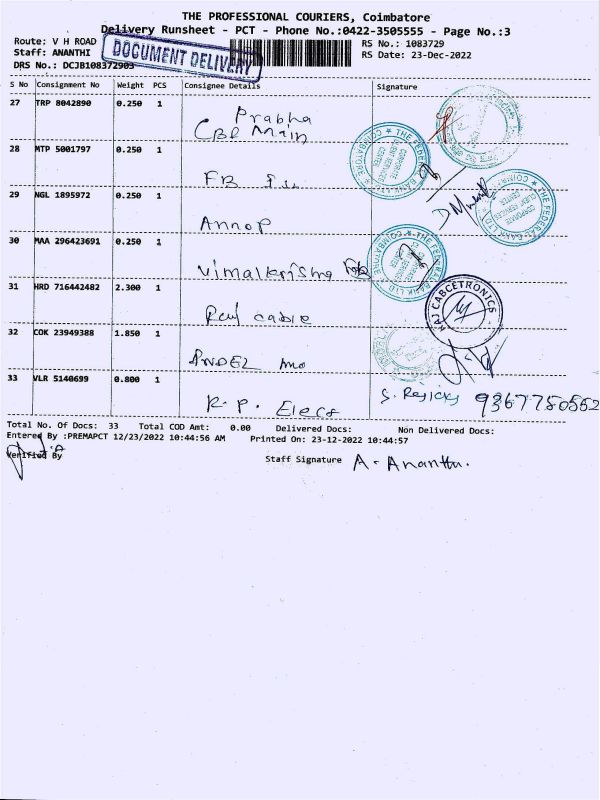 THE PROFESSIONAL COURIERS, Coimbatore
Delivery Runsheet - PCT - Phone No.:0422-3505555 - Page No.:3
Route: V H ROAD
RS No.: 1083729
Staff: ANANTHI
DOCUMENT DELIVERY
RS Date: 23-Dec-2022
DRS No.: DCJB108372903
S No Consignment No Weight PCS Consignee Details Signature
27 TRP 8042890 0.250 1 Prabha
CBE Main
28 MTP 5001797 0.250 1
FB
29 NGL 1895972 0.250 1
Annop
30 MAA 296423691 0.250 1
Vimalkrishna
31 HRD 716442482 2.300 1
Raj cable
RAJ CABCETRONICS
32 COK 23949388 1.850 1
33 VLR 5140699 0.800 1
R. P. Elecs
9367750552
Total No. Of Docs: 33 Total COD Amt: 0.00 Delivered Docs: Non Delivered Docs:
Entered By :PREMAPCT 12/23/2022 10:44:56 AM Printed On: 23-12-2022 10:44:57
Verified By
Staff Signature A. Ananthi.